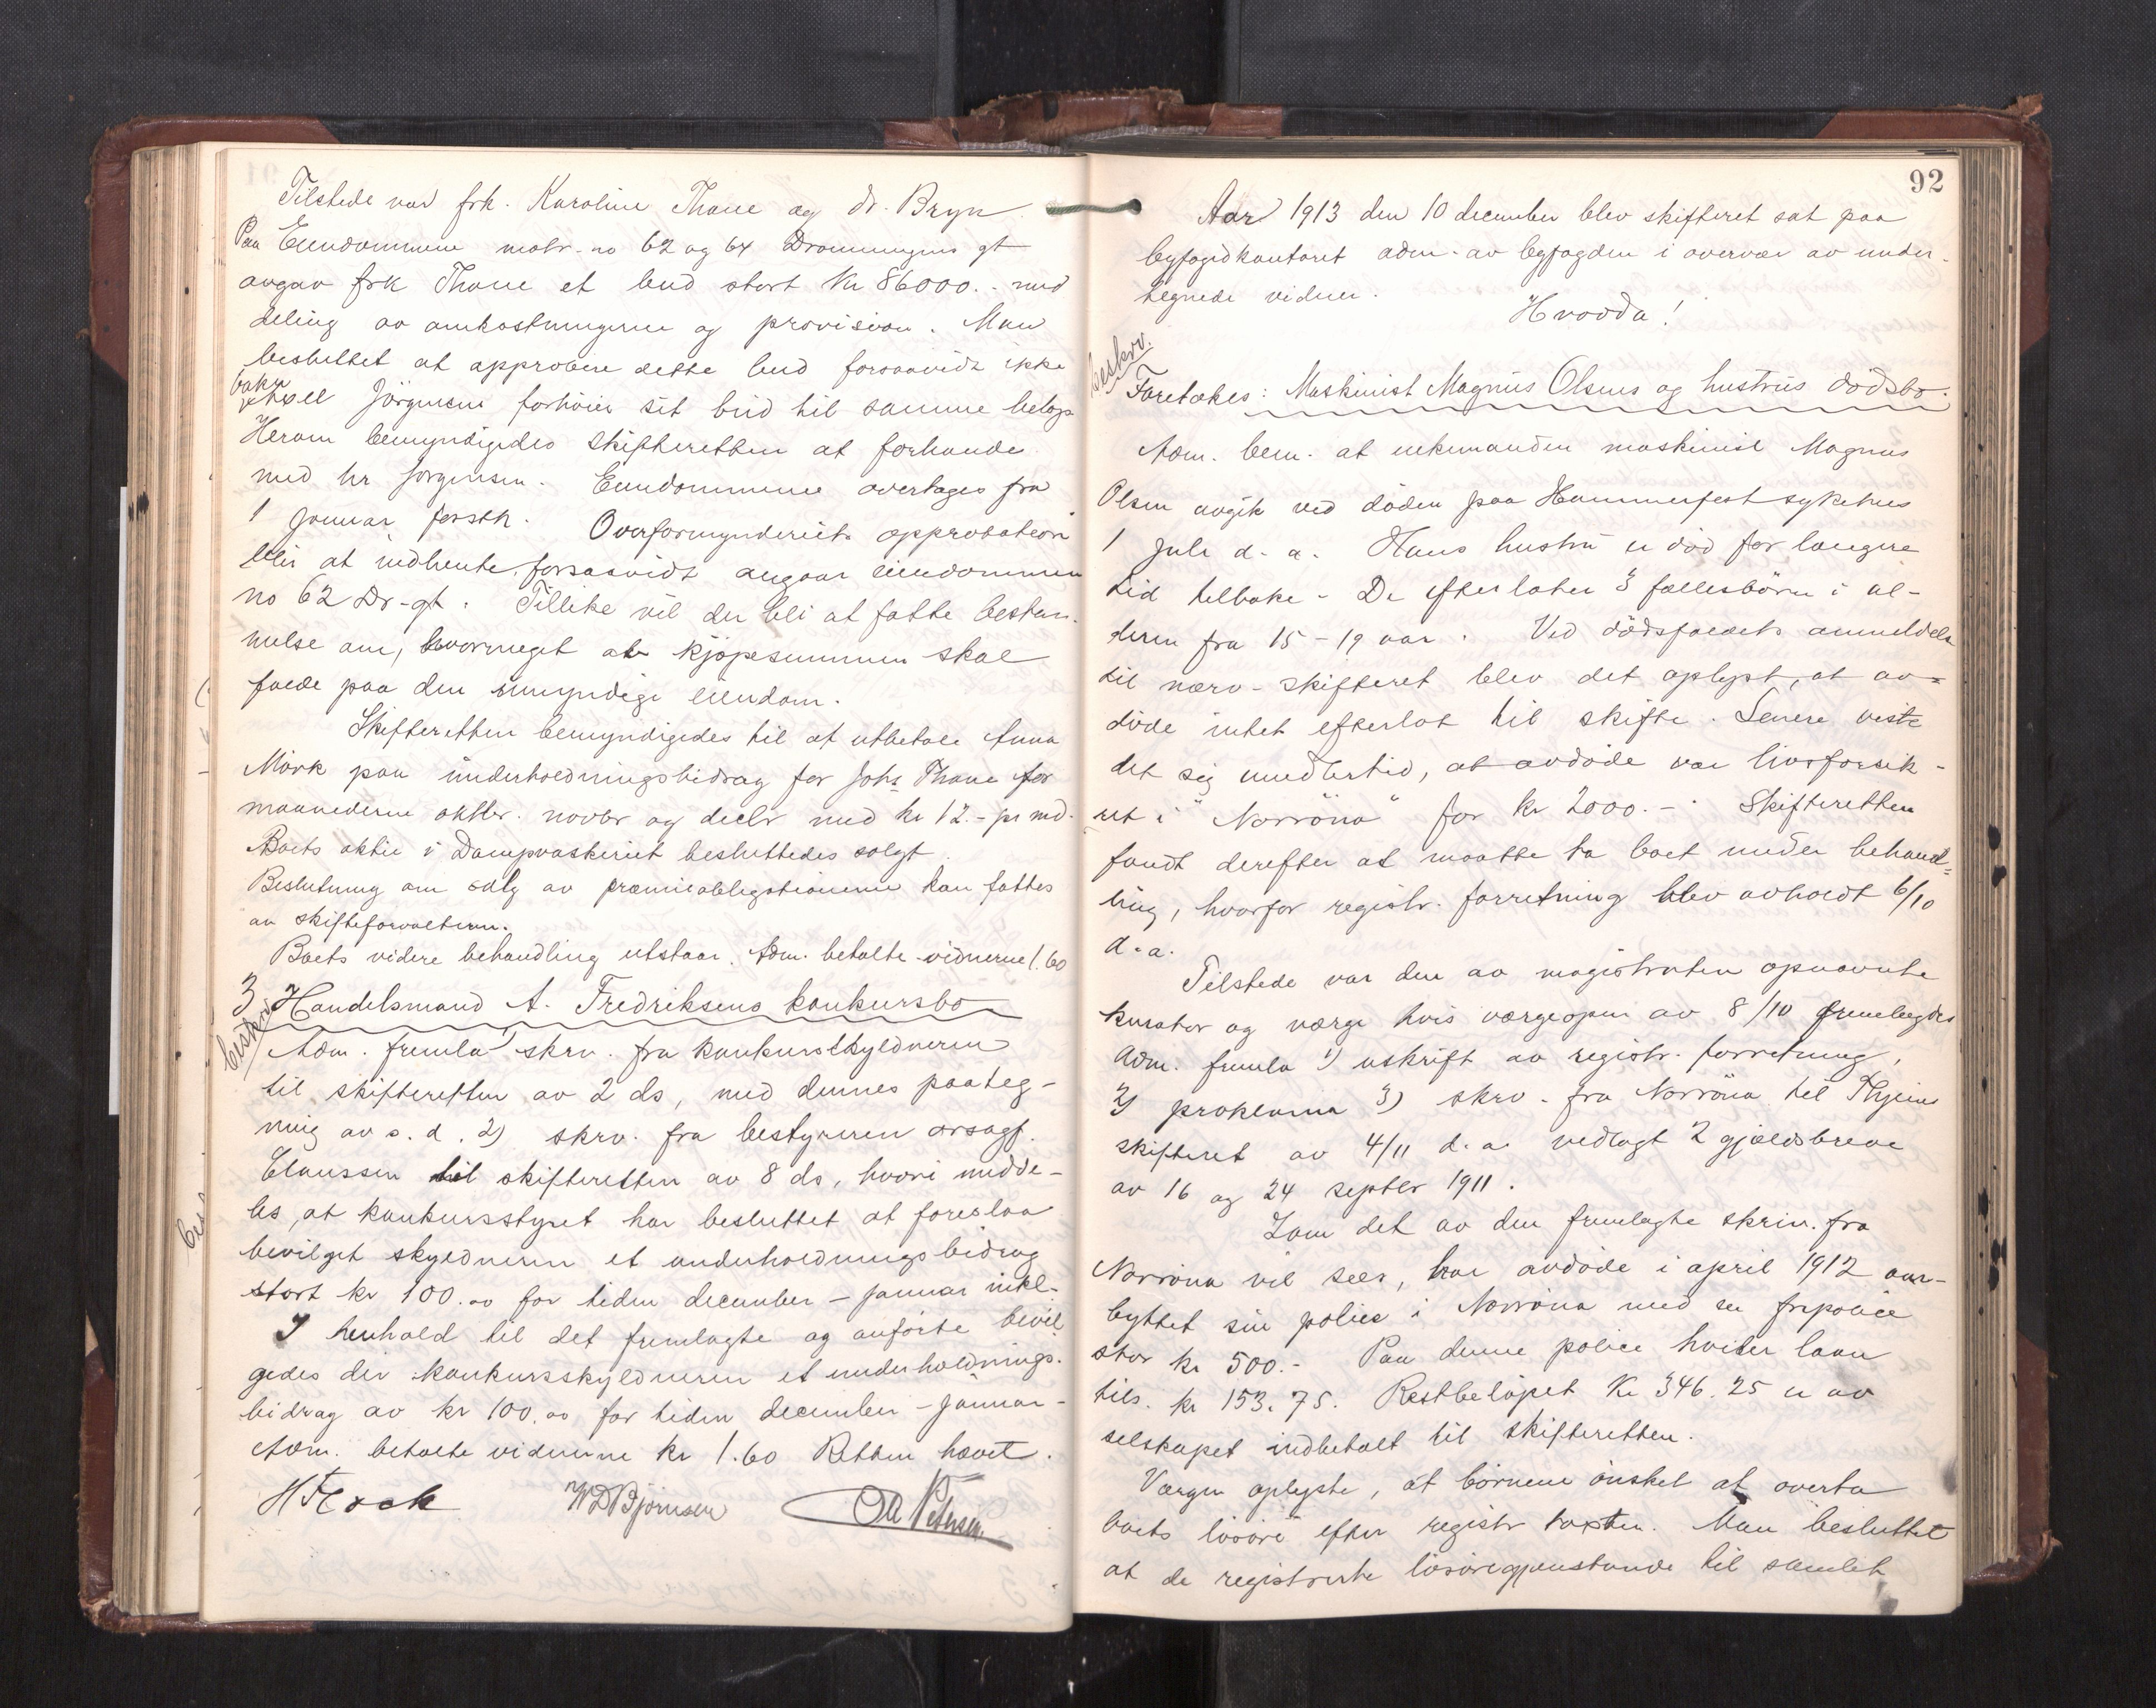 Tilstede var frk. Karoline Thane og dr. Bryn.
Paa Eiendommene matr. no 62 og 64 Dronningens gt
avgav frk Thane et bud stort Kr 86000.- med
deling av omkostningerne og provision. Man
besluttet at approbere dette bud forsaavidt ikke
baker Axel Jörgensen forhöier sit bud til samme belöp
Herom bemyndigedes skifteretten at forhandle
med hr Jørgensen. Eiendommene overtages fra
1 januar førstk. Overformynderiets approbation
blir at indhente, forsaavidt angaar eiendommen
no 62 Dr-gt. Tillike vil der bli at fatte bestem-
melse om, hvormeget av kjöpesummen skal
falde paa den umyndige eiendom.
Skifteretten bemyndigedes til at utbetale Anna
Mörk paa underholdningsbidrag for Johs Thane for
maanederne oktbr. novbr og decbr med kr 12.- pr md.
Boets aktie i Dampvaskeriet besluttedes solgt.
Beslutning om salg av præmieobligationerne kan fattes
av skifteforvalteren.
Boets videre behandling utstaar. Adm. betalte vidnerne 1.60
3 Handelsmand A. Fredriksens konkursbo
beskrv.
Adm. fremla 1) skrv. fra konkursskyldneren
til skifteretten av 2 ds, med dennes paateg-
ning av s. d. 2) skrv. fra bestyreren orsagf.
Claussen til skifteretten av 8 ds, hvori medde-
les, at konkursstyret har besluttet at foreslaa
bevilget skyldneren et underholdningsbidrag
stort kr 100.00 for tiden december - januar inkl.
I henhold til det fremlagte og anförte bevil-
gedes der konkursskyldneren et underholdnings-
bidrag av kr 100.00 for tiden december - januar -
Adm. betalte vidnerne kr 1.60 Retten hævet.
WDBjörnsen
Petersen
92
Aar 1913 den 10 december blev skifteret sat paa
byfogdkontoret adm. av byfogden i overvær av under-
tegnede vidner.
Hvorda!
beskrv.
Foretokes: Maskinist Magnus Olsens og hustrus dödsbo.
Adm. bem. at enkemanden maskinist Magnus
Olsen avgik ved döden paa Hammerfest sykehus
1 juli d. a. Hans hustru er död for længere
tid tilbake. De efterlater 3 fællesbörn i al-
deren fra 15 - 19 aar. Ved dödsfaldets anmeldelse
til nærv. skifteret blev det oplyst, at av-
döde intet efterlot til skifte. Senere viste
det sig imidlertid, at avdöde var livsforsik-
ret i "Norröna" for kr 2000.-. Skifteretten
fandt derefter at maatte ta boet under behand-
ling, hvorfor registr. forretning blev avholdt 6/10
d. a.
Tilstede var den av magistraten opnævnte
kurator og værge hvis værgeopn av 8/10 fremlagdes
Adm. fremla 1) utskrift av registr. forretning,
2) proklama 3) skrv. fra Norröna til Thjems
skifteret av 4/11 d. a. vedlagt 2 gjældsbreve
av 16 og 24 septbr 1911.
Som det av den fremlagte skriv. fra
Norröna vil sees, har avdöde i april 1912 om-
byttet sin police i Norröna med en fripolice
stor kr 500.- Paa denne police hviler laan
tils. kr 153.75. Restbelöpet Kr 346.25 er av
selskapet indbetalt til skifteretten.
Værgen oplyste, at börnene önsket at overta
boets lösöre efter registr taxten. Man besluttet
at de registrerte lösöregjenstande til samlet